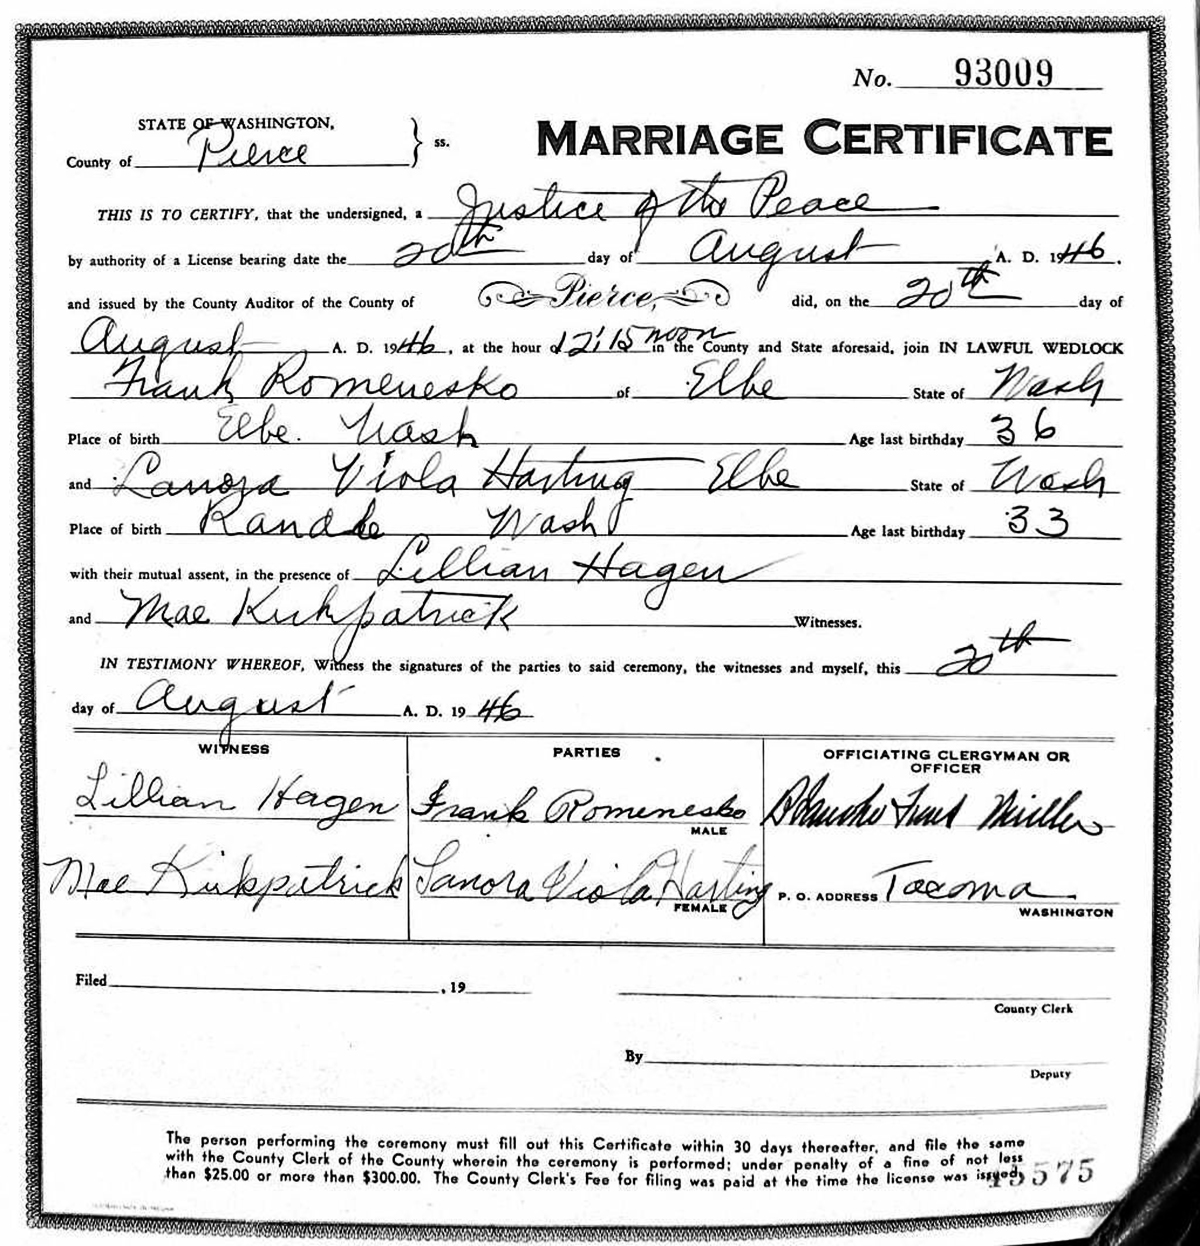 No. 93009
STATE OF WASHINGTON,
County of Pierce } ss.
MARRIAGE CERTIFICATE
THIS IS TO CERTIFY, that the undersigned, a Justice of the Peace
by authority of a License bearing date the 20th day of August A. D. 1946,
and issued by the County Auditor of the County of Pierce, did, on the 20th day of
August A. D. 1946, at the hour of 12:15 noon in the County and State aforesaid, join IN LAWFUL WEDLOCK
Frank Romenesko of Elbe State of Wash
Place of birth Elbe. Wash Age last birthday 36
and Lanora Viola Harting Elbe State of Wash
Place of birth Randle Wash Age last birthday 33
with their mutual assent, in the presence of Lillian Hagen
and Mae Kirkpatrick Witnesses.
IN TESTIMONY WHEREOF, Witness the signatures of the parties to said ceremony, the witnesses and myself, this 20th
day of August A. D. 1946
WITNESS PARTIES OFFICIATING CLERGYMAN OR OFFICER
Lillian Hagen Frank Romenesko Miller
MALE
Mae Kirkpatrick Lanora Viola Harting P. O. ADDRESS Tacoma
FEMALE WASHINGTON
Filed , 19
County Clerk
By
Deputy
The person performing the ceremony must fill out this Certificate within 30 days thereafter, and file the same
with the County Clerk of the County wherein the ceremony is performed; under penalty of a fine of not less
than $25.00 or more than $300.00. The County Clerk's Fee for filing was paid at the time the license was issued.
15575